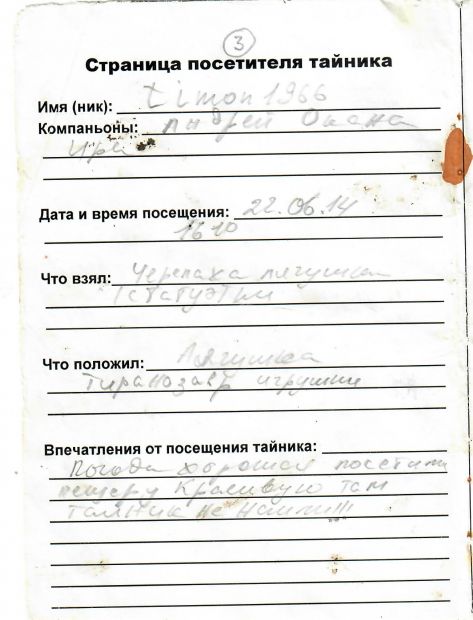 3
Страница посетителя тайника
Имя (ник): timon1966
Компаньоны: Андрей Оксана
Ира
Дата и время посещения: 22.06.14
16 10
Что взял: Черепаха лягушка
(статуэтки
Что положил: Лягушка
тиранозавр игрушки
Впечатления от посещения тайника:
Погода хорошая посетили
пещеру красивую там
тайник не нашли!!!